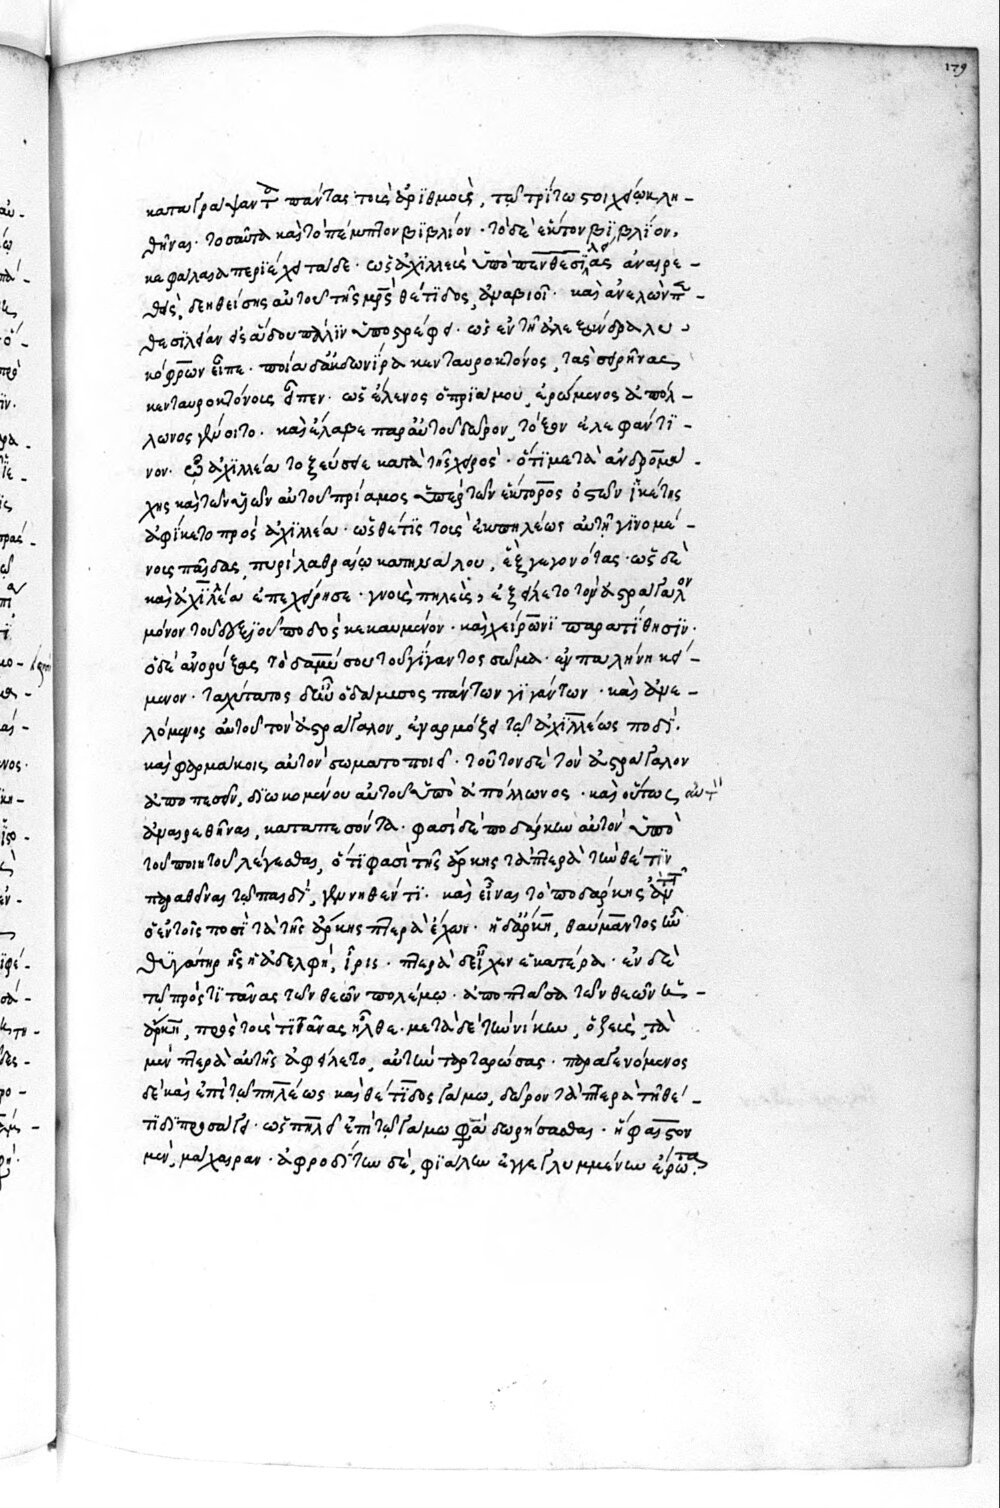 καταγράψαντ(α) πάντας τοῖς ἀριθμοῖς, τῷ τρίτω στοιχείω κλη-
θῆναι. τοσαῦτα καὶ τὸ πέμπτον βιβλίον. τὸ δὲ ἕκτον βιβλίον,
κεφάλαια περιέχει τάδε. ὡς ἀχιλλεὺς ὑπὸ πενθεσιλείας ἀναιρε-
θεὶς, δεηθείσης αὐτοῦ τῆς μρς θέτιδος, ἀναβιοῖ. καὶ ἀνελὼν π(εν)-
θεσίλειαν εἰς ἅδου πάλιν ὑποστρέφει. ὡς ἐν τῆ ἀλεξάνδρα λυ-
κόφρων εἶπε. ποία δἀηδονίδα κενταυροκτόνος, τὰς σειρῆνας
κενταυροκτόνους εἶπεν. ὡς ἕλενος ὁ πριάμου, ἐρώμενος ἀπόλ-
λωνος γένοιτο. καὶ ἔλαβε παρ αὐτοῦ δῶρον, τόξον ἐλεφάντι-
νον. ὧ ἀχιλλέα τοξεύσειε κατὰ τῆς χειρός. ὅτι μετὰ ἀνδρομά-
χης καὶ τῶν υἱῶν αὐτοῦ πρίαμος ὑπὲρ τῶν ἕκτορος ὀστῶν ἱκέτης
ἀφίκετο πρὸς ἀχιλλέα. ὡς θέτις τοὺς ἐκ πηλέως αὐτῆ γινομέ-
νους παῖδας, πυρὶ λαθραίω κατηνάλου, ἓξ γεγονότας. ὡς δὲ
καὶ ἀχιλλέα ἐπεχείρησε. γνοὺς πηλεὺς, ἐξείλετο τὸν ἀστράγαλον
μόνον τοῦ δεξιοῦ ποδὸς κεκαυμένον. καὶ χείρωνι παρατίθησιν.
ὁ δὲ ἀνορύξας τὸ δαμύσου τοῦ γίγαντος σῶμα. ἐν παλήνη κεί-
μενον. ταχύτατος δὲ ἦν ὁ δάμυσος πάντων γιγάντων. καὶ ἀνε-
λόμενος αὐτοῦ τὸν ἀστράγαλον, ἐναρμόζει τῷ ἀχιλλέως ποδί.
καὶ φαρμάκοις αὐτὸν σωματοποιεῖ. τοῦτον δὲ τὸν ἀστράγαλον
ἀποπεσεῖν, διωκομένου αὐτοῦ ὑπὸ ἀπόλλωνος. καὶ οὕτως αὐτ(ὸν)
ἀναιρεθῆναι, καταπεσόντα. φασὶ δὲ ποδάρκην αὐτὸν ὑπὸ
τοῦ ποιητοῦ λέγεσθαι, ὅτι φασὶ τῆς ἄρκης τὰ πτερὰ τὴν θέτιν
παραθεῖναι τῷ παιδὶ, γεννηθέντι. καὶ εἶναι τὸ ποδάρκης ἀν(τὶ) τ(οῦ)
ὁ ἐν τοῖς ποσὶ τὰ τῆς ἄρκης πτερὰ ἔχων. ἡ δἄρκη, θαύμαντος ἦν
θυγάτηρ ἧς ἡ ἀδελφὴ, ἶρις. πτερὰ δεῖχεν ἑκατέρα. ἐν δὲ
τῷ πρὸς τιτᾶνας τῶν θεῶν πολέμω. ἀποπτᾶσα τῶν θεῶν ἡ
ἄρκη, πρὸς τοὺς τιτᾶνας ἦλθε. μετὰ δὲ τὴν νίκην, ὁ ζεὺς τὰ
μὲν πτερὰ αὐτῆς ἀφείλετο, αὐτὴν ταρταρώσας. παραγενόμενος
δὲ καὶ ἐπὶ τῷ πηλέως καὶ θέτιδος γάμω, δῶρον τὰ πτερὰ τῆ θέ-
τιδι προσάγει. ὡς πηλεῖ ἐπὶ τῷ γάμω φασὶ δωρήσασθαι. ἥφαιστον
μὲν, μάχαιραν. ἀφροδίτην δὲ, φιάλην ἐγγεγλυμμένην ἔρωτας.